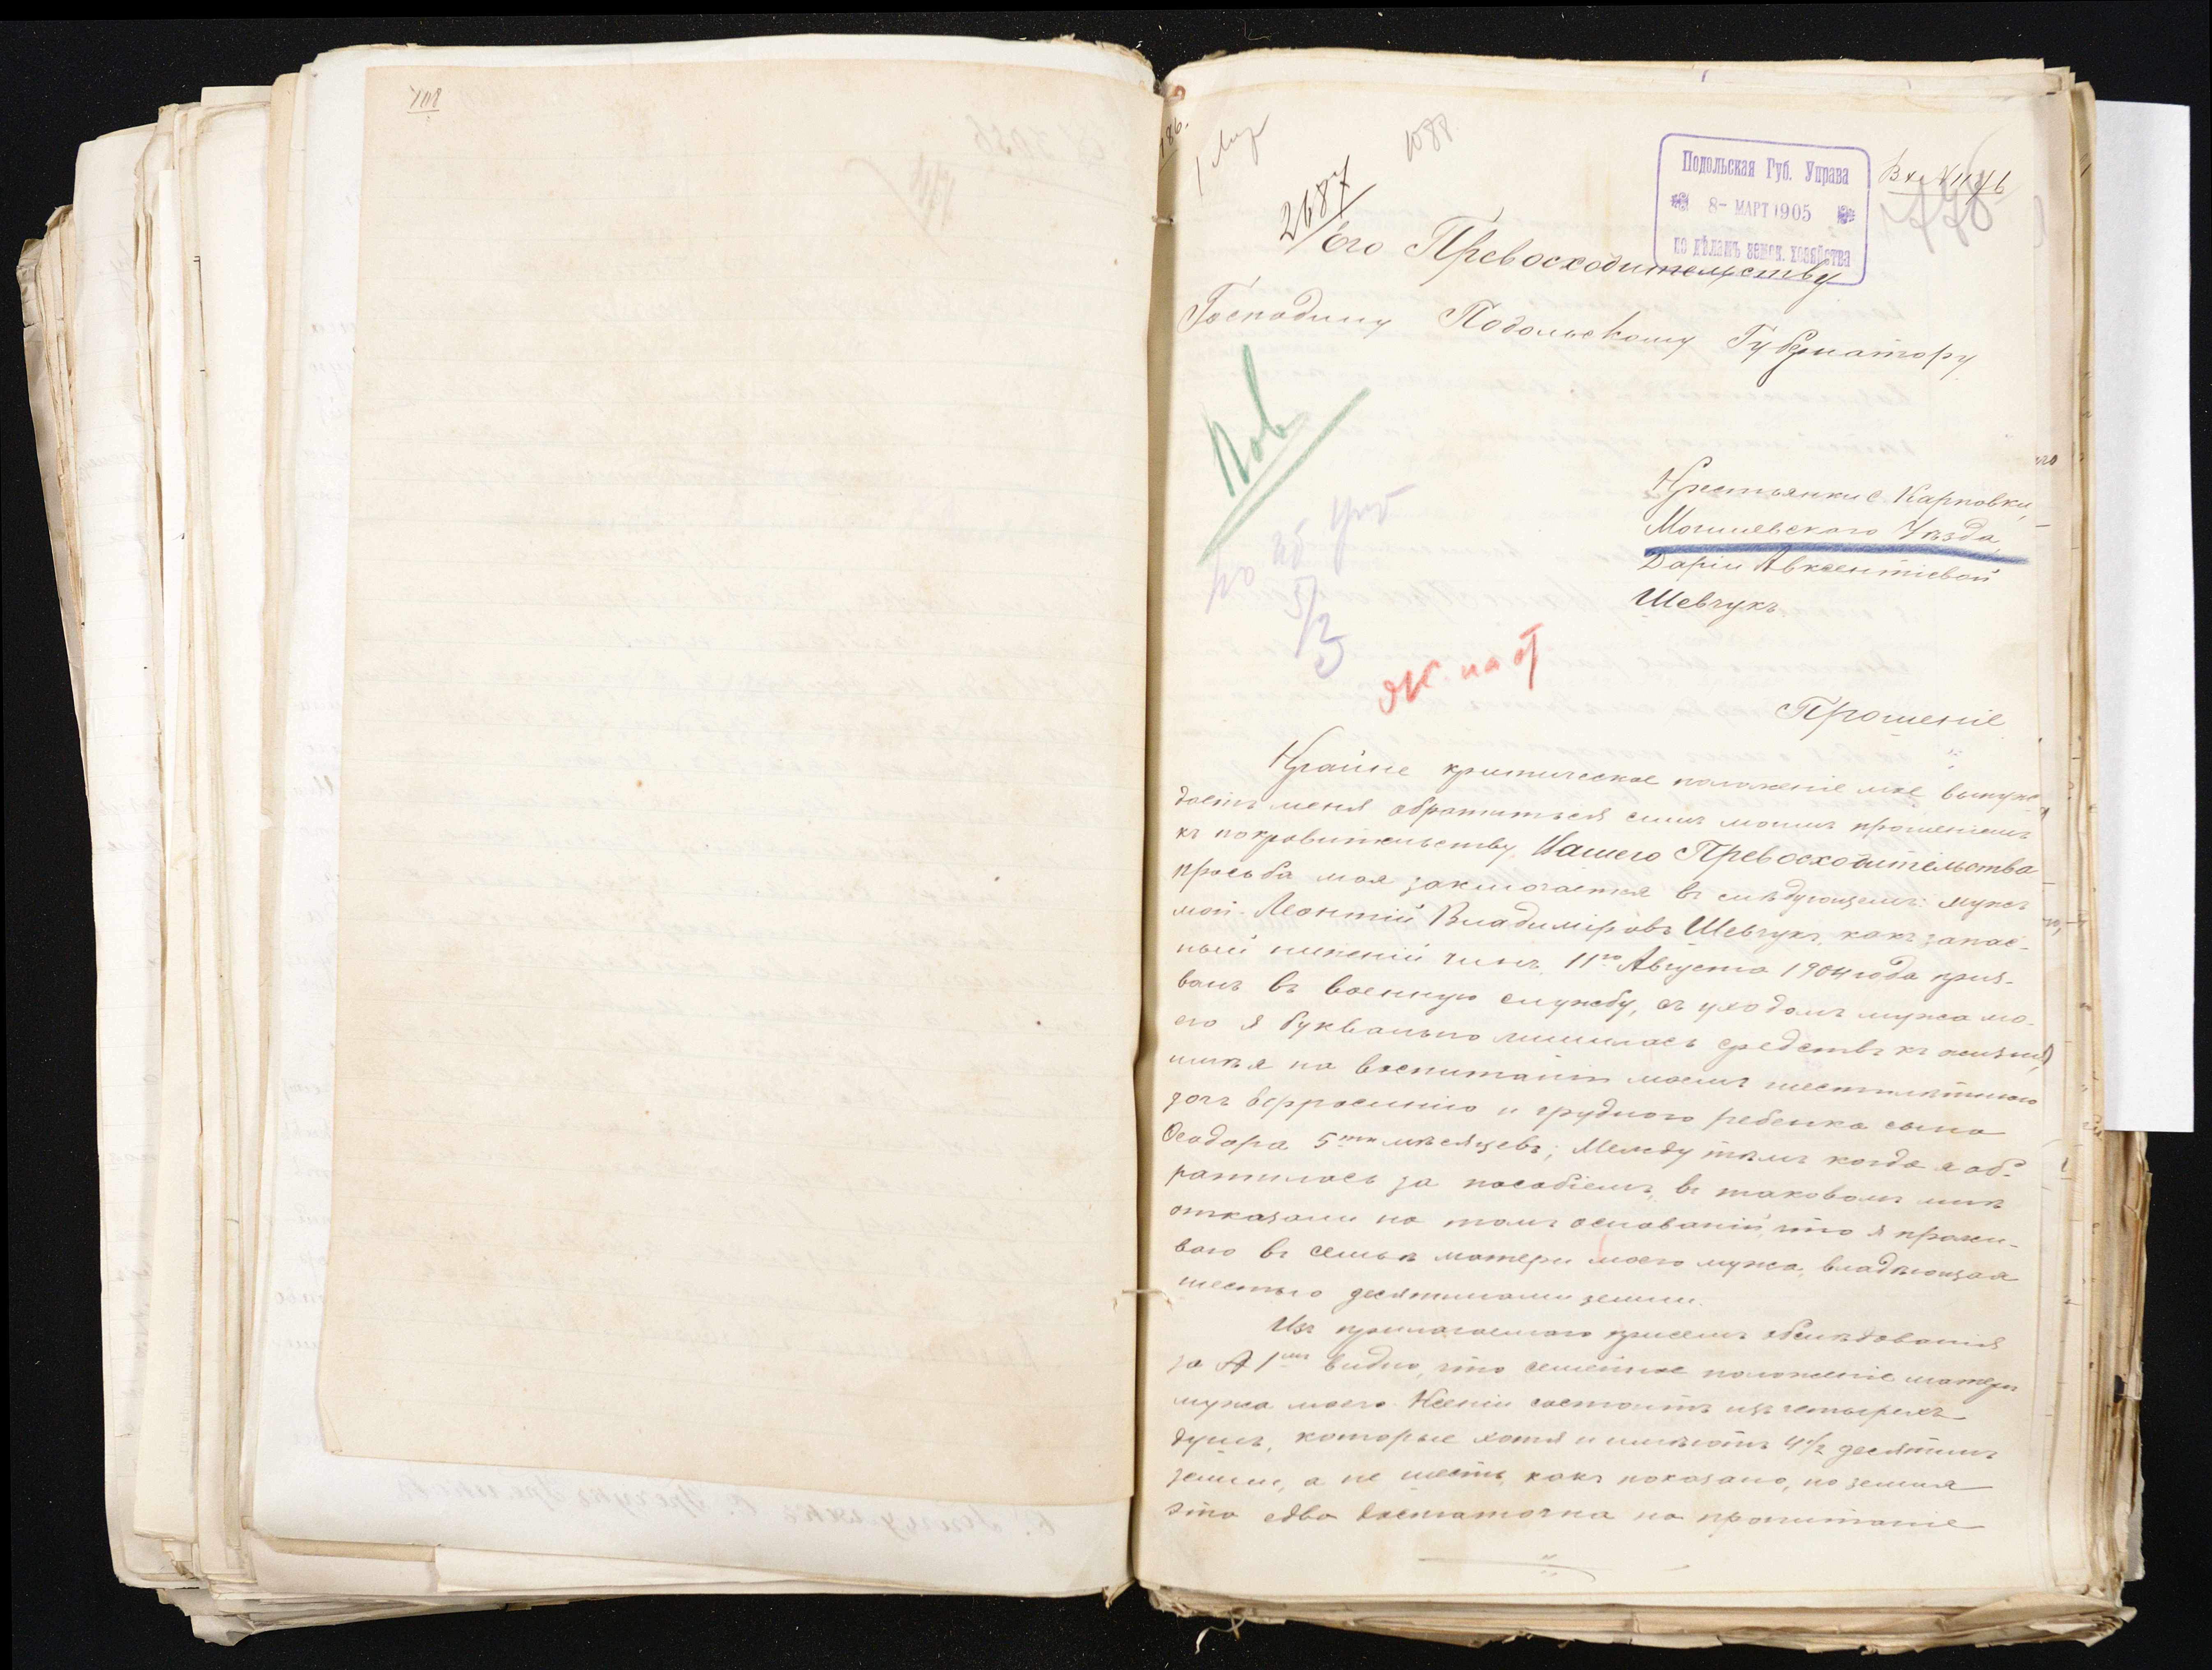 108
186.
1088
2687
Подольская Губ. Управа
8- МАРТ 1905
по дѣламъ земск. хозяйства
Его Превосходительству
Господину Подольскому Губернатору
Крестьянки с. Карповки,
Могилевскаго Уѣзда,
Даріи Авксентіевой
Шевчукъ.
5/3
Прошеніе
Крайне критическое положеніе мое вынуж-
даетъ меня обратиться симъ моимъ прошеніемъ
къ покровительству Вашего Превосходительства
просьба моя заключается въ слѣдующемъ: мужъ
мой Леонтій Владиміровъ Шевчукъ, какъ запас-
ный нижній чинъ, 11го Августа 1904 года приз-
ванъ въ военную службу, съ уходомъ мужа мо-
его я буквально лишилась средствъ къ жизни,
имѣя на воспитаніи моемъ шестилѣтнюю
дочь и груднаго ребенка сына
Ѳеодора 5ти мѣсяцевъ; Между тѣмъ когда я об-
ратилась за пособіемъ, въ таковомъ мнѣ
отказали на томъ основаніи, что я прожи-
ваю въ семьѣ матери моего мужа, владѣющая
шестью десятинами земли.
Изъ прилагаемаго присемъ обслѣдованія
за № 1мъ видно, что семейное положеніе матери
мужа моего Ксеніи состоитъ изъ четырехъ
душъ, которые хотя и имѣютъ 4 1/2 десятинъ
земли, а не шесть, какъ показано, но земля
эта едва достаточна на пропитаніе